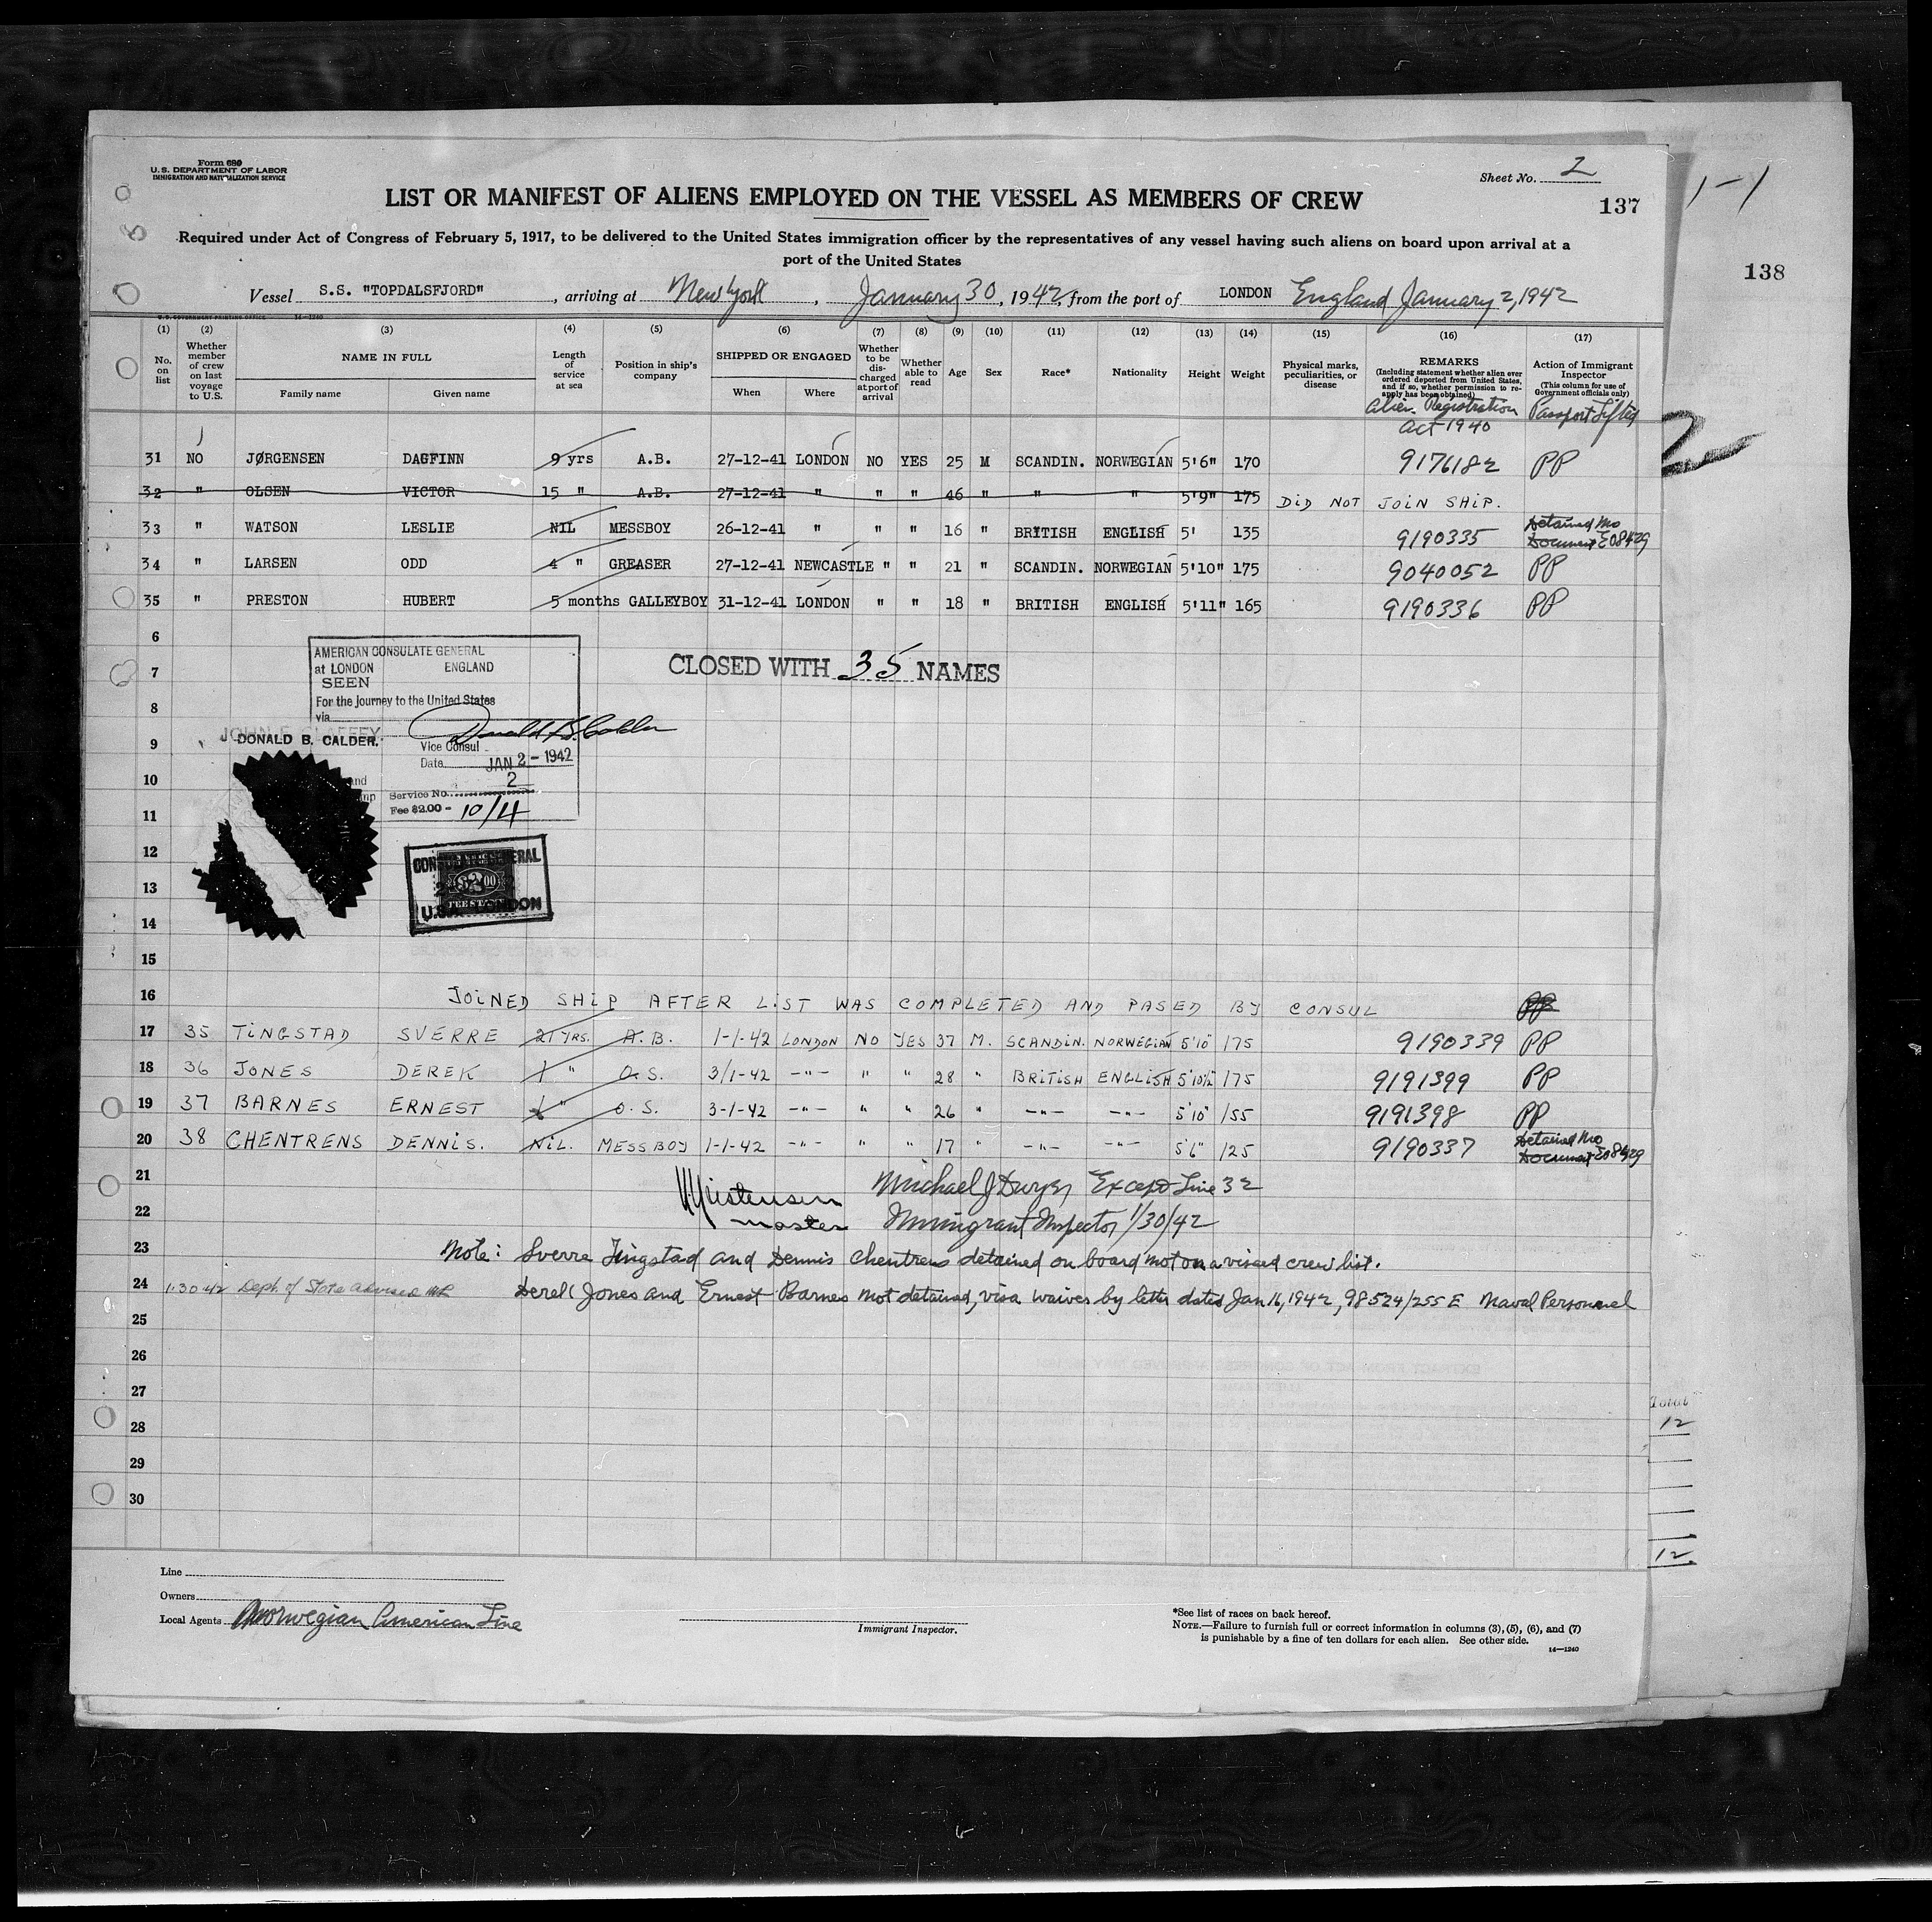 Form 680
U.S. DEPARTMENT OF LABOR
IMMIGRATION AND NATURALIZATION SERVICE
Sheet No. 2
LIST OR MANIFEST OF ALIENS EMPLOYED ON THE VESSEL AS MEMBERS OF CREW
137
1-1
138
Required under Act of Congress of February 5, 1917, to be delivered to the United States immigration officer by the representatives of any vessel having such aliens on board upon arrival at a
port of the United States
Vessel S.S. "TOPDALSFJORD", arriving at New York, January 30, 1942, from the port of LONDON England January 2, 1942
U.S. GOVERNMENT PRINTING OFFICE 14—1240
(1) (2) (3) (4) (5) (6) (7) (8) (9) (10) (11) (12) (13) (14) (15) (16) (17)
No. on list
Whether member of crew on last voyage to U.S.
NAME IN FULL
Family name Given name
Length of service at sea
Position in ship's company
SHIPPED OR ENGAGED
When Where
Whether to be discharged at port of arrival
Whether able to read
Age Sex Race* Nationality Height Weight
Physical marks, peculiarities, or disease
REMARKS
(Including statement whether alien ever ordered deported from United States, and if so, whether permission to reapply has been obtained)
Alien Registration
Act 1940
Action of Immigrant Inspector
(This column for use of Government officials only)
Passport Lifted
2
31 NO JØRGENSEN DAGFINN 9 yrs A.B. 27-12-41 LONDON NO YES 25 M SCANDIN. NORWEGIAN 5'6" 170 9176182 PP
32 " OLSEN VICTOR 15 " A.B. 27-12-41 " " " 46 " " " 5'9" 175 DID NOT JOIN SHIP.
33 " WATSON LESLIE NIL MESSBOY 26-12-41 " " " 16 " BRITISH ENGLISH 5' 135 9190335 Detained No
Document E08429
34 " LARSEN ODD 4 " GREASER 27-12-41 NEWCASTLE " " 21 " SCANDIN. NORWEGIAN 5'10" 175 9040052 PP
35 " PRESTON HUBERT 5 months GALLEYBOY 31-12-41 LONDON " " 18 " BRITISH ENGLISH 5'11" 165 9190336 PP
6
AMERICAN CONSULATE GENERAL
at LONDON ENGLAND
SEEN
For the journey to the United States
via
7 CLOSED WITH 35 NAMES
8
Donald B. Calder
9 DONALD B. CALDER.
Vice Consul
Date JAN 2 - 1942
10
Service No. 2
Fee $2.00 - 10/4
11
12
CONSULATE GENERAL
$2.00
FEE STAMP
U.S.A. LONDON
13
14
15
16 JOINED SHIP AFTER LIST WAS COMPLETED AND PASED BY CONSUL PP
17 35 TINGSTAD SVERRE 21 YRS. A.B. 1-1-42 LONDON NO YES 37 M. SCANDIN. NORWEGIAN 5'10" 175 9190339 PP
18 36 JONES DEREK 1 " O.S. 3/1-42 -"- " " 28 " BRITISH ENGLISH 5'10½ 175 9191399 PP
19 37 BARNES ERNEST " O.S. 3-1-42 -"- " " 26 " -"- -"- 5'10" 155 9191398 PP
20 38 CHENTRENS DENNIS. NIL. MESSBOY 1-1-42 -"- " " 17 " -"- -"- 5'6" 125 9190337 Detained No
Document E08429
21 Michael J Dwyer Except Line 32
22 master Immigrant Inspector 1/30/42
23 Note: Sverre Tingstad and Dennis Chentrens detained on board not on a visaed crew list.
24 1-30-42 Dept. of State advised Derek Jones and Ernest Barnes not detained, visa waiver by letter dated Jan 16, 1942, 98524/255 E Naval Personnel
25
26
27
28
29
30
Total
12
12
Line
Owners
Local Agents Norwegian American Line
Immigrant Inspector.
*See list of races on back hereof.
NOTE.—Failure to furnish full or correct information in columns (3), (5), (6), and (7)
is punishable by a fine of ten dollars for each alien. See other side.
14—1240